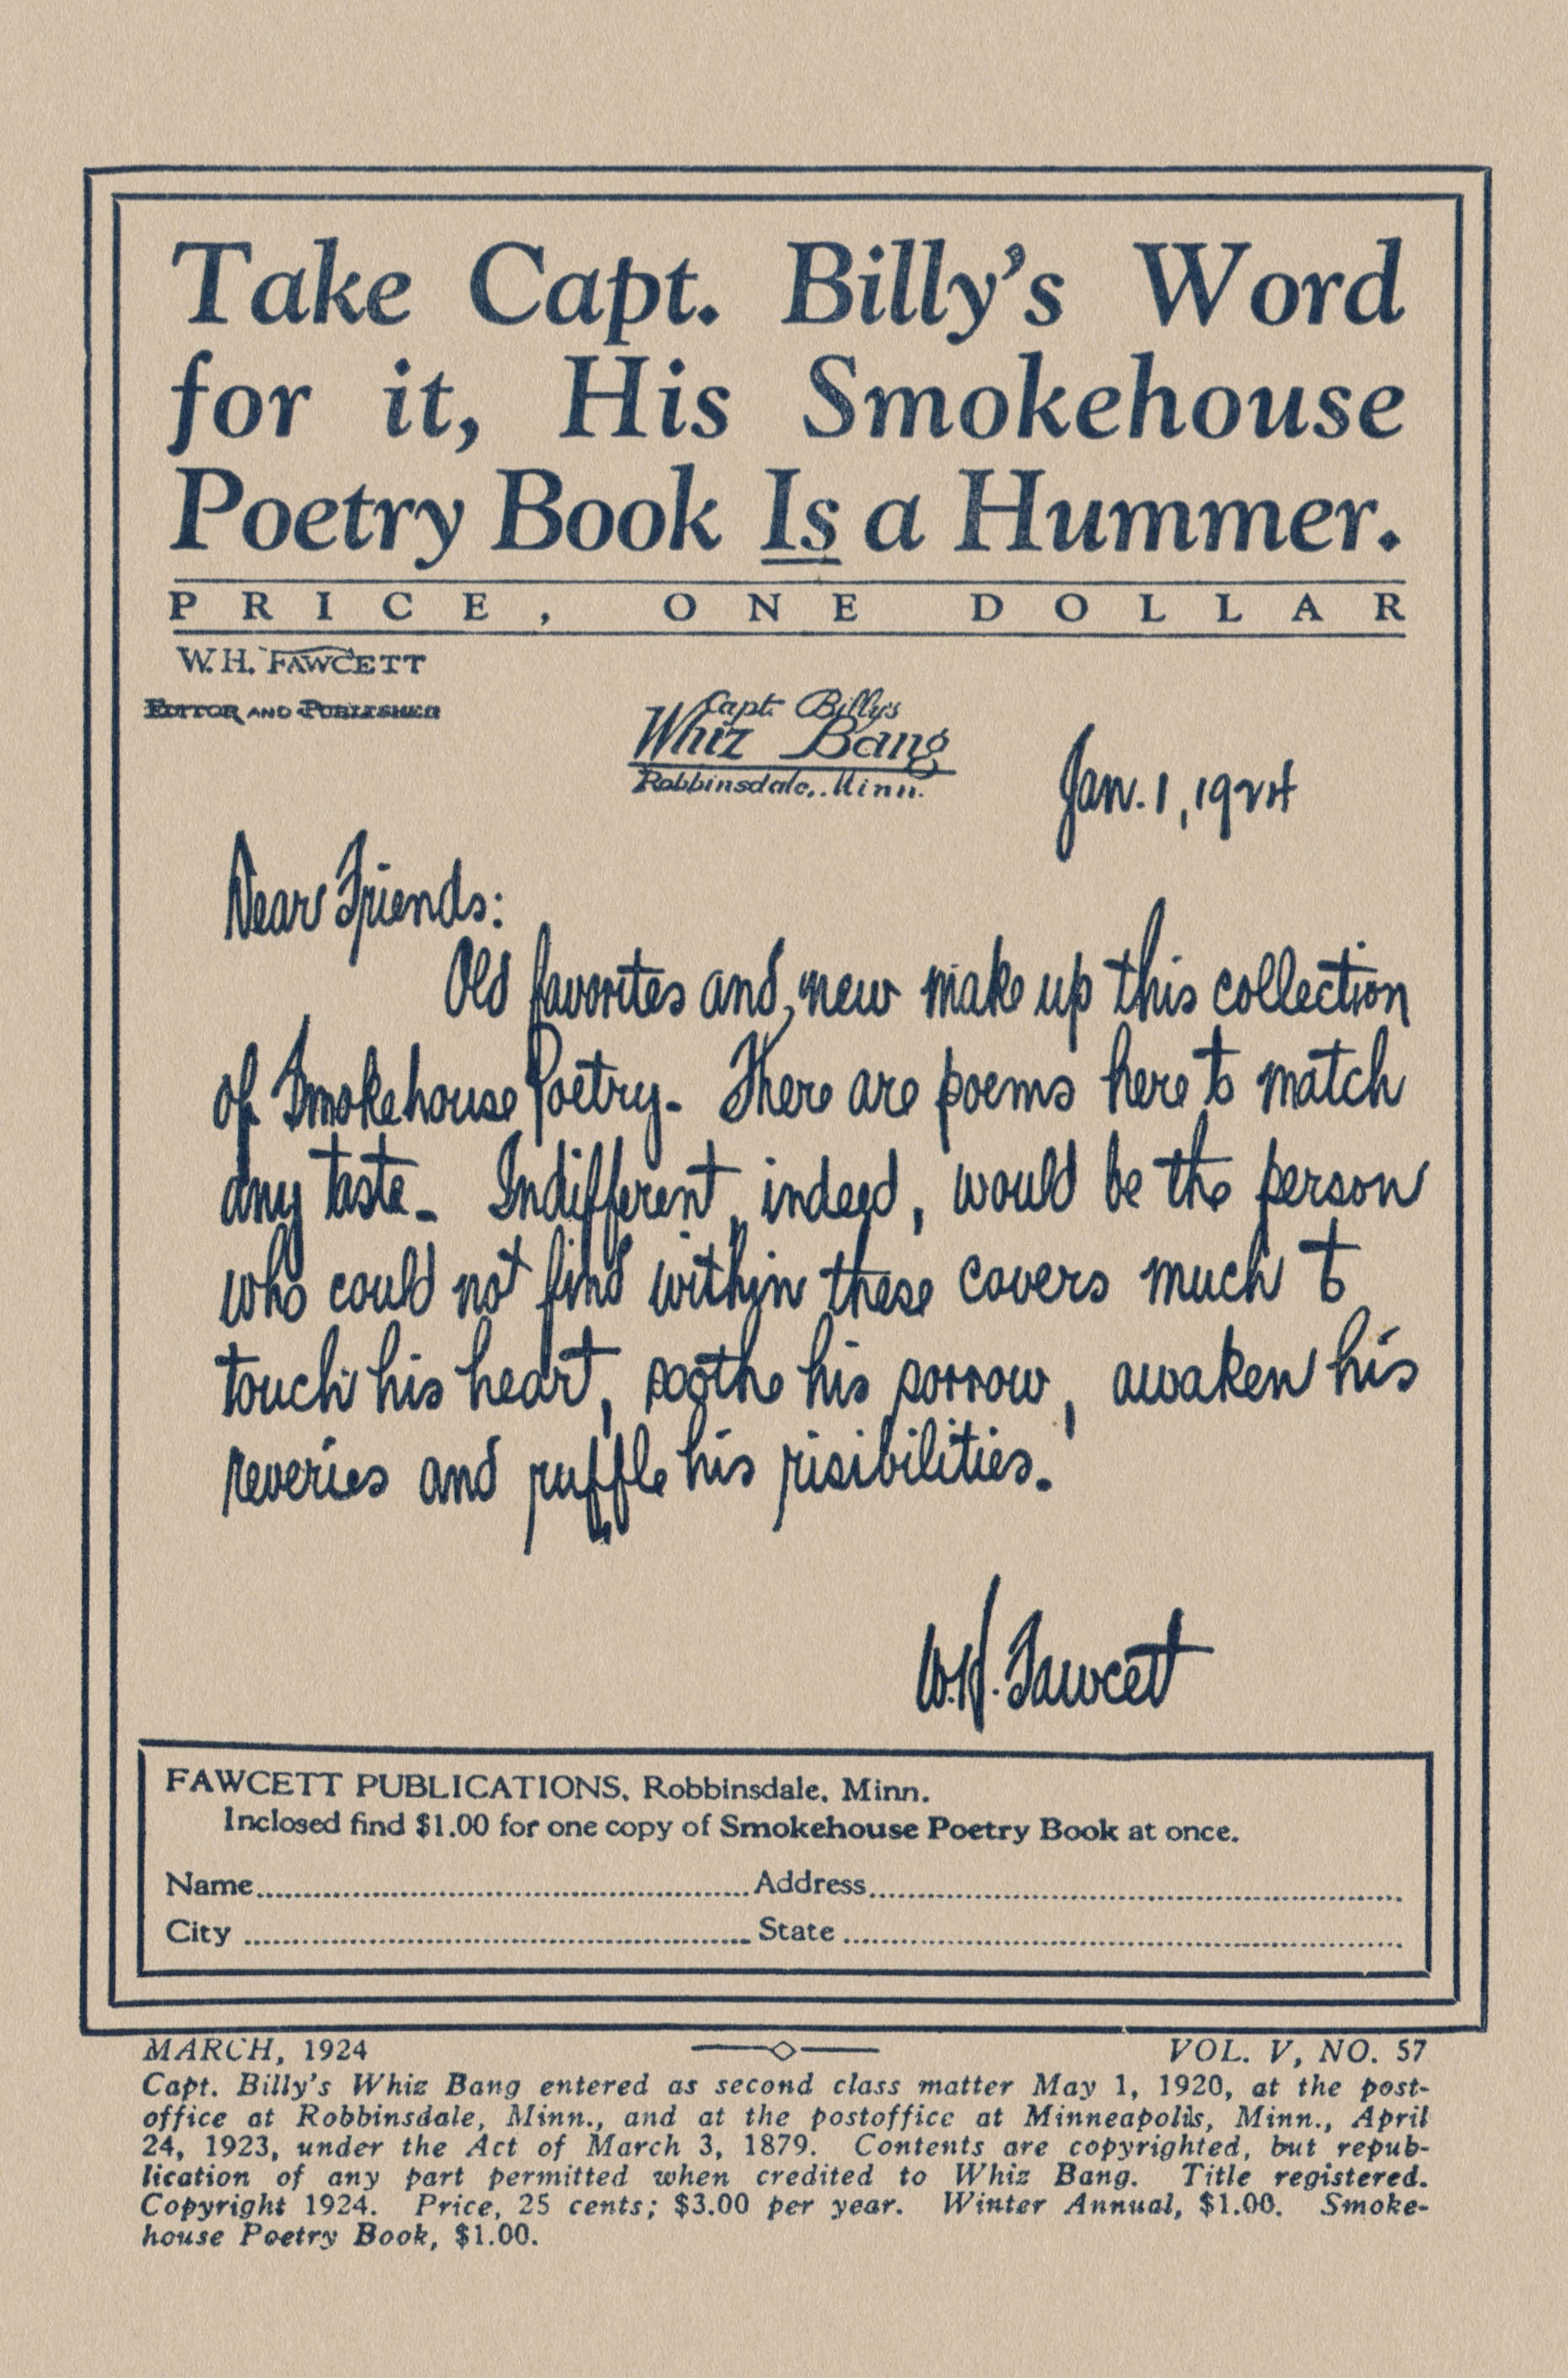 Take Capt. Billy's Word
for it, His Smokehouse
Poetry Book Is a Hummer.
PRICE, ONE DOLLAR
W.H. FAWCETT
EDITOR AND PUBLISHER
Capt. Billy's
Whiz Bang
Robbinsdale, Minn.
Jan. 1, 1924
Dear Friends:
Old favorites and new make up this collection
of Smokehouse Poetry. There are poems here to match
any taste. Indifferent, indeed, would be the person
who could not find within these covers much to
touch his heart, soothe his sorrow, awaken his
reveries and ruffle his risibilities.
W.H. Fawcett
FAWCETT PUBLICATIONS, Robbinsdale, Minn.
Inclosed find $1.00 for one copy of Smokehouse Poetry Book at once.
Name..........Address..........
City ..........State ..........
MARCH, 1924 VOL. V, NO. 57
Capt. Billy's Whiz Bang entered as second class matter May 1, 1920, at the post-
office at Robbinsdale, Minn., and at the postoffice at Minneapolis, Minn., April
24, 1923, under the Act of March 3, 1879. Contents are copyrighted, but repub-
lication of any part permitted when credited to Whiz Bang. Title registered.
Copyright 1924. Price, 25 cents; $3.00 per year. Winter Annual, $1.00. Smoke-
house Poetry Book, $1.00.